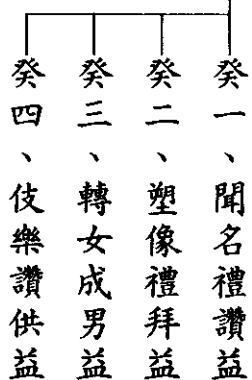 癸一、聞名禮讚益
癸二、塑像禮拜益
癸三、轉女成男益
癸四、伎樂讚供益